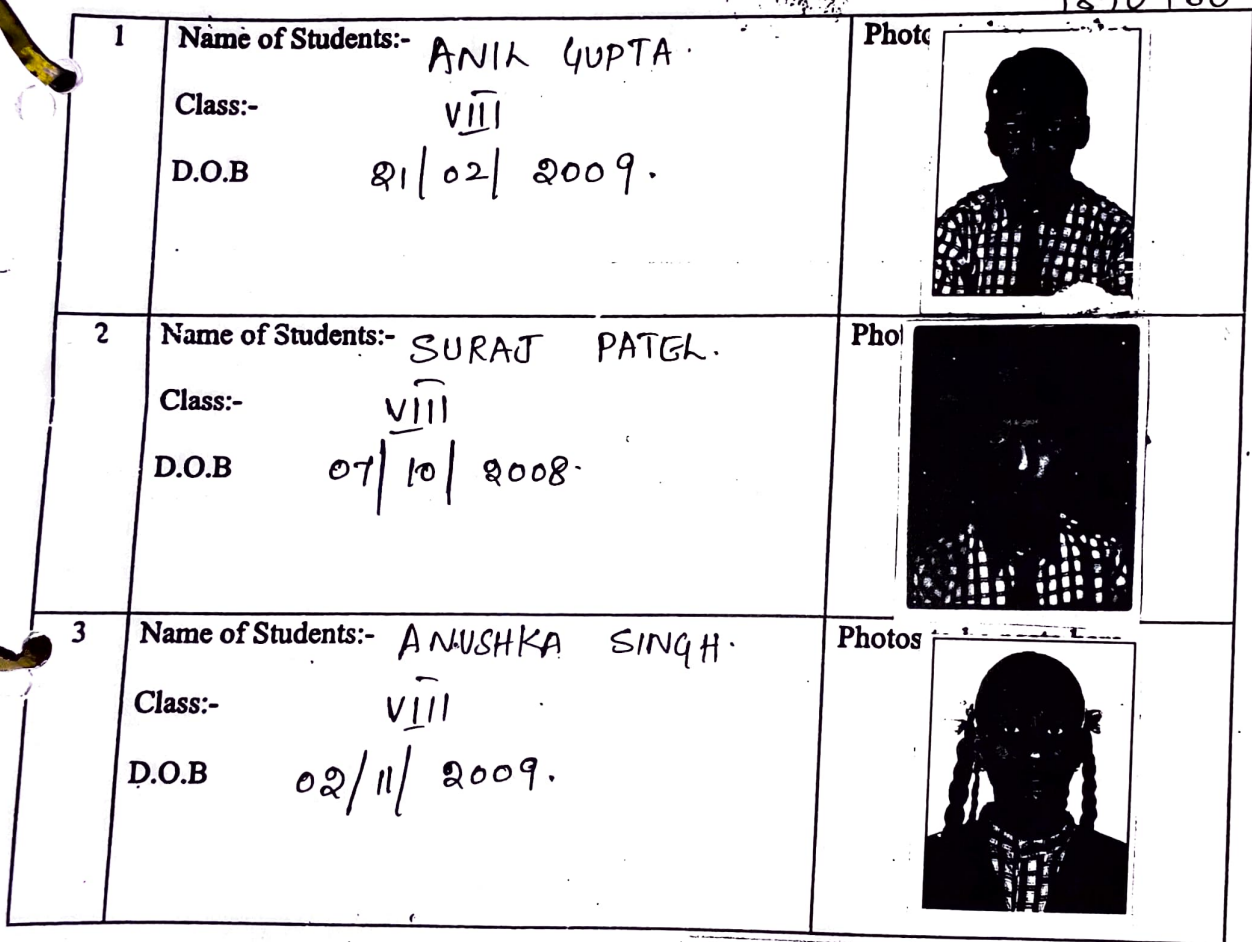 1 Name of Students:- ANIL GUPTA.
Photo
Class:- VIII
D.O.B 21/02/2009.
2 Name of Students:- SURAJ PATEL.
Pho
Class:- VIII
D.O.B 07/10/2008.
3 Name of Students:- ANUSHKA SINGH.
Photos
Class:- VIII
D.O.B 02/11/2009.